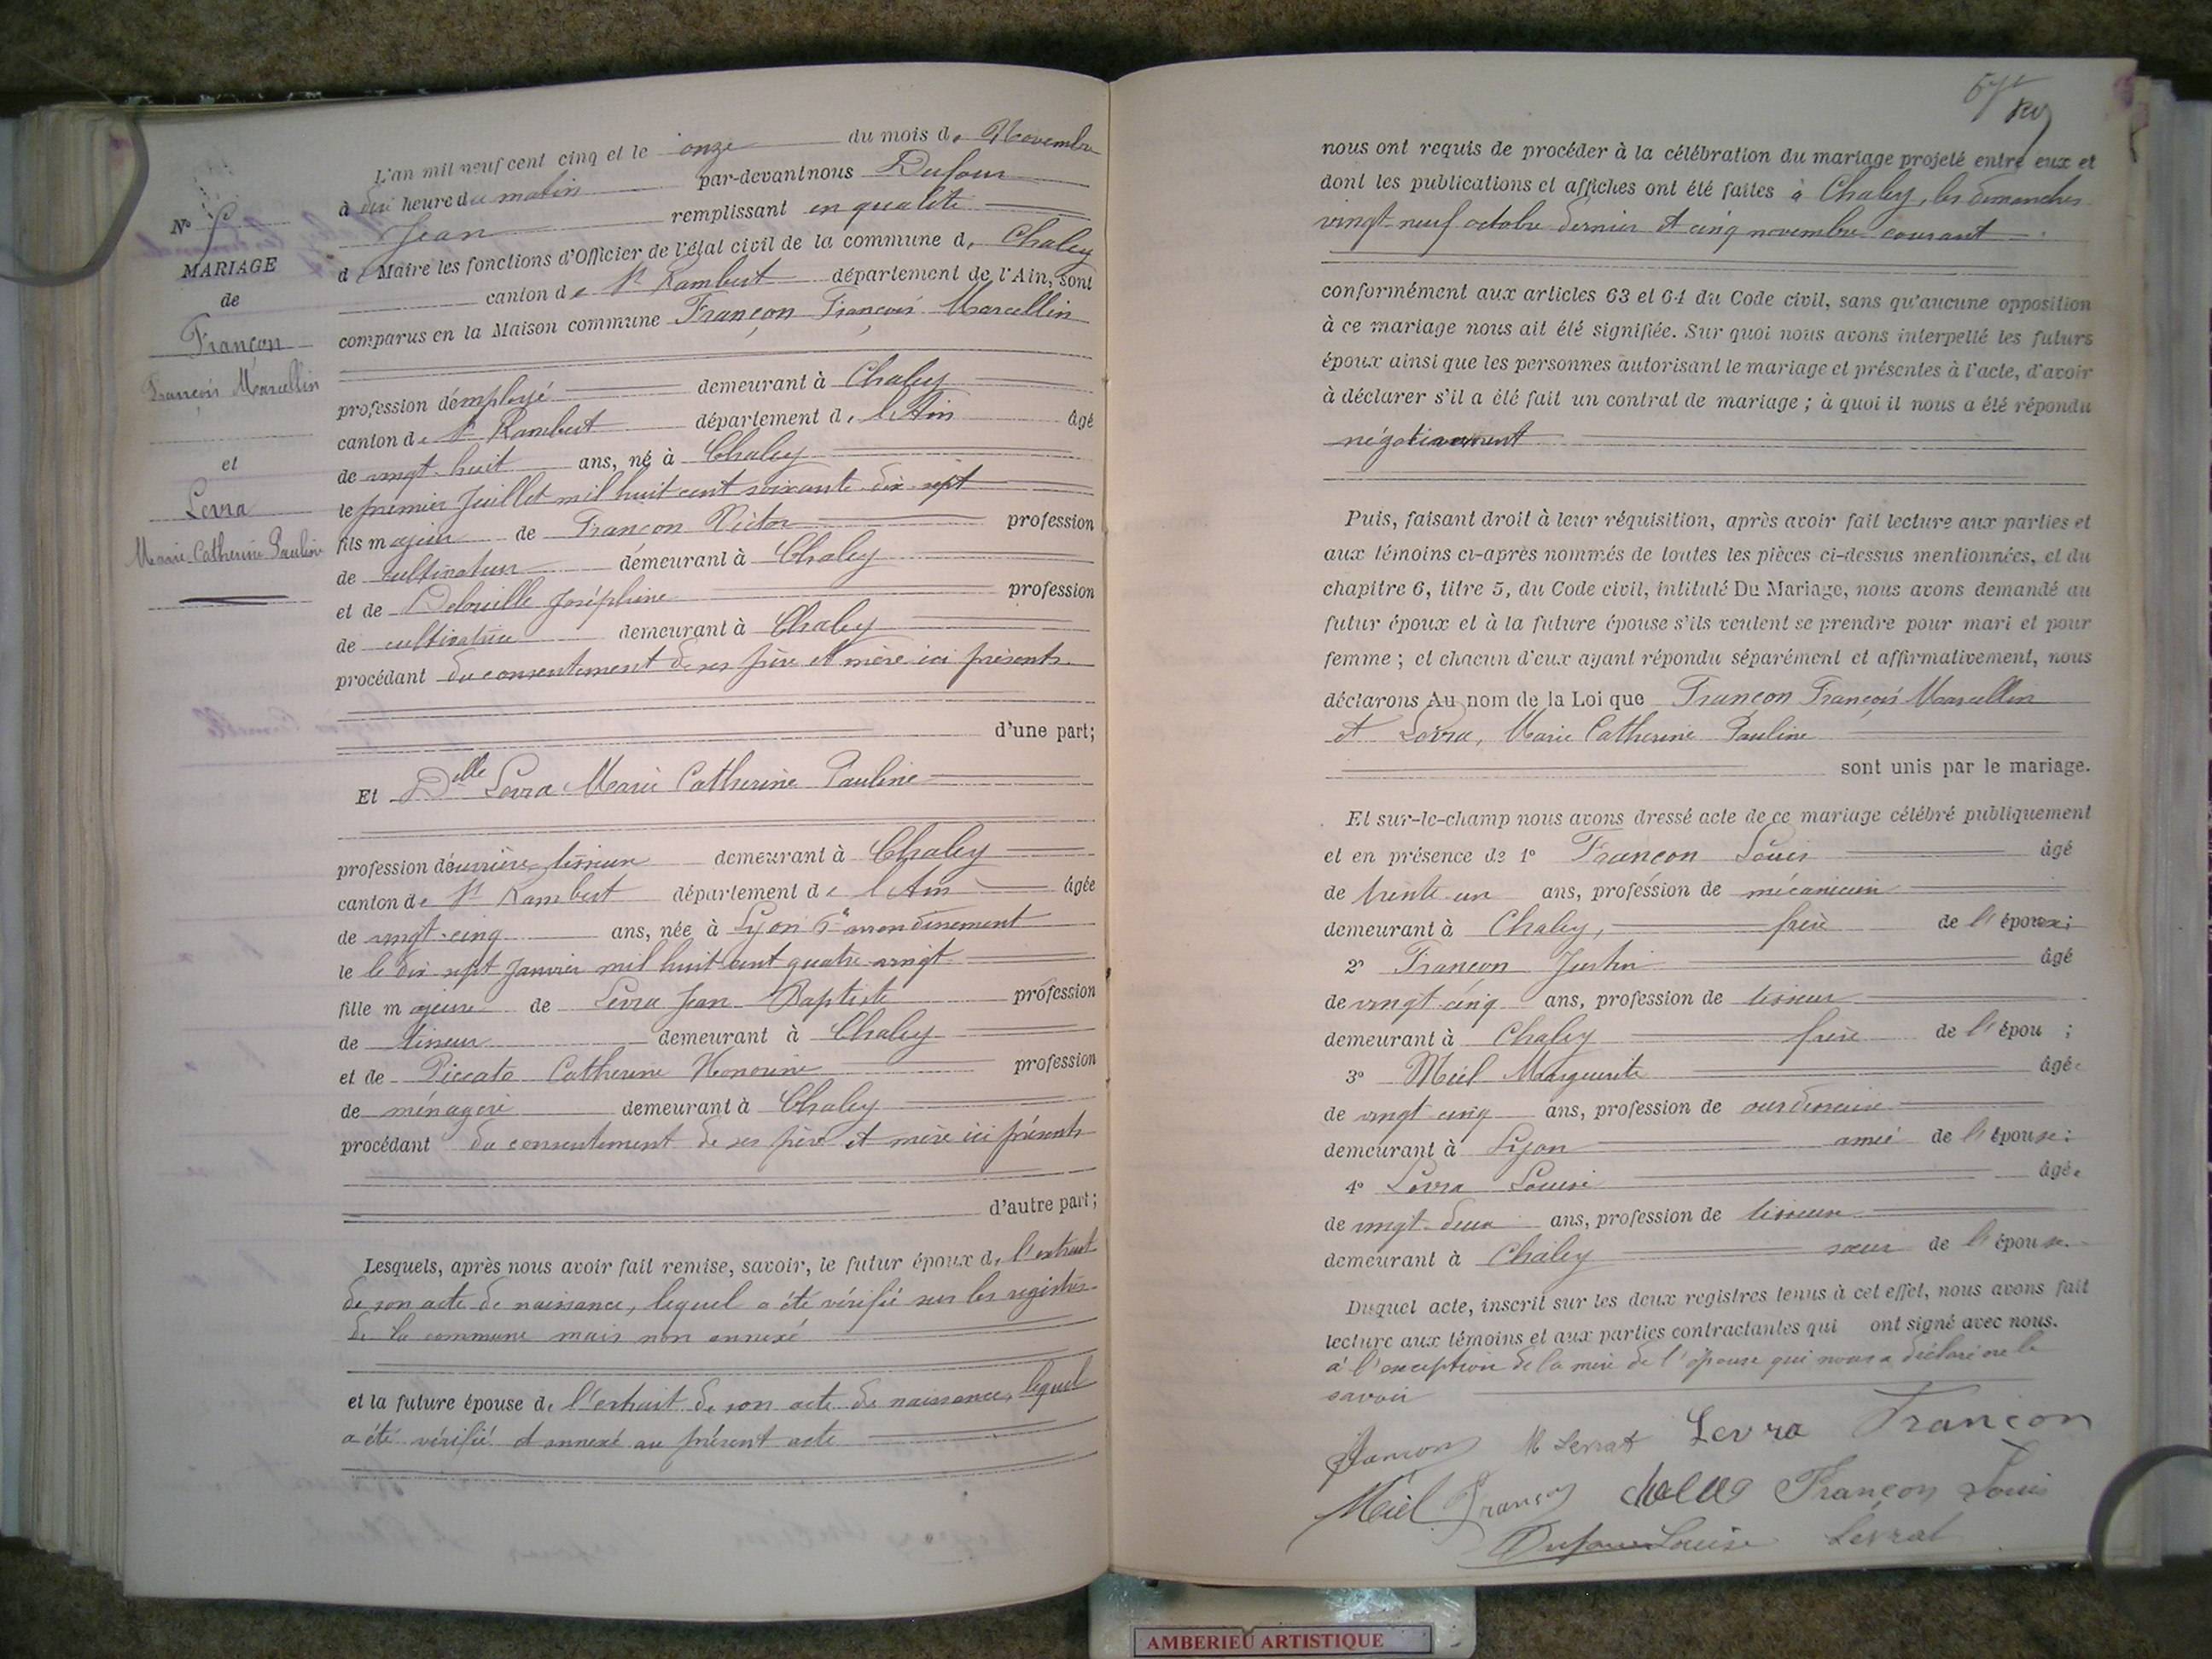 N°
MARIAGE
de
Françon
François Marcellin
et
Levra
Marie Catherine Pauline
L'an mil neuf cent cinq et le onze du mois de Novembre
à dix heure du matin par-devant nous Dufour
Jean remplissant en qualité
de Maire les fonctions d'Officier de l'état civil de la commune de Chaley
canton de St Rambert département de l'Ain, sont
comparus en la Maison commune Françon François Marcellin
profession d'employé demeurant à Chaley
canton de St Rambert département de l'Ain âgé
de vingt-huit ans, né à Chaley
le premier Juillet mil huit cent soixante-dix-sept
fils majeur de Françon Victor profession
de cultivateur demeurant à Chaley
et de Delouille Joséphine profession
de cultivatrice demeurant à Chaley
procédant du consentement de ses père et mère ici présents
d'une part;
Et Delle Levra Marie Catherine Pauline
profession d'ouvrière tisseur demeurant à Chaley
canton de St Rambert département de l'Ain âgée
de vingt-cinq ans, née à Lyon 6e arrondissement
le le dix sept Janvier mil huit cent quatre-vingt
fille majeure de Levra Jean Baptiste profession
de tisseur demeurant à Chaley
et de Piccato Catherine Honorine profession
de ménagère demeurant à Chaley
procédant du consentement de ses père et mère ici présents
d'autre part;
Lesquels, après nous avoir fait remise, savoir, le futur époux de l'extrait
de son acte de naissance, lequel a été vérifié sur les registres
de la commune mais non annexé
et la future épouse de l'extrait de son acte de naissance, lequel
a été vérifié et annexé au présent acte
nous ont requis de procéder à la célébration du mariage projeté entre eux et
dont les publications et affiches ont été faites à Chaley, les dimanches
vingt-neuf octobre dernier et cinq novembre courant
conformément aux articles 63 et 64 du Code civil, sans qu'aucune opposition
à ce mariage nous ait été signifiée. Sur quoi nous avons interpellé les futurs
époux ainsi que les personnes autorisant le mariage et présentes à l'acte, d'avoir
à déclarer s'il a été fait un contrat de mariage ; à quoi il nous a été répondu
négativement
Puis, faisant droit à leur réquisition, après avoir fait lecture aux parties et
aux témoins ci-après nommés de toutes les pièces ci-dessus mentionnées, et du
chapitre 6, titre 5, du Code civil, intitulé Du Mariage, nous avons demandé au
futur époux et à la future épouse s'ils veulent se prendre pour mari et pour
femme ; et chacun d'eux ayant répondu séparément et affirmativement, nous
déclarons Au nom de la Loi que Françon François Marcellin
et Levra, Marie Catherine Pauline
sont unis par le mariage.
Et sur-le-champ nous avons dressé acte de ce mariage célébré publiquement
et en présence de 1° Françon Louis âgé
de trente un ans, profession de mécanicien
demeurant à Chaley, frère de l'époux;
2° Françon Justin âgé
de vingt-cinq ans, profession de tisseur
demeurant à Chaley frère de l'épou ;
3° Miel Marguerite âgée
de vingt-cinq ans, profession de ourdisseuse
demeurant à Lyon amie de l'épouse;
4° Levra Louise âgée
de vingt-deux ans, profession de tisseuse
demeurant à Chaley sœur de l'épouse.
Duquel acte, inscrit sur les deux registres tenus à cet effet, nous avons fait
lecture aux témoins et aux parties contractantes qui ont signé avec nous.
à l'exception de la mère de l'épouse qui nous a déclaré ne le
savoir
Françon M Levrat Levra Françon
Miel Françon Françon Louis
Dufour Louise Levrat
AMBERIEU ARTISTIQUE